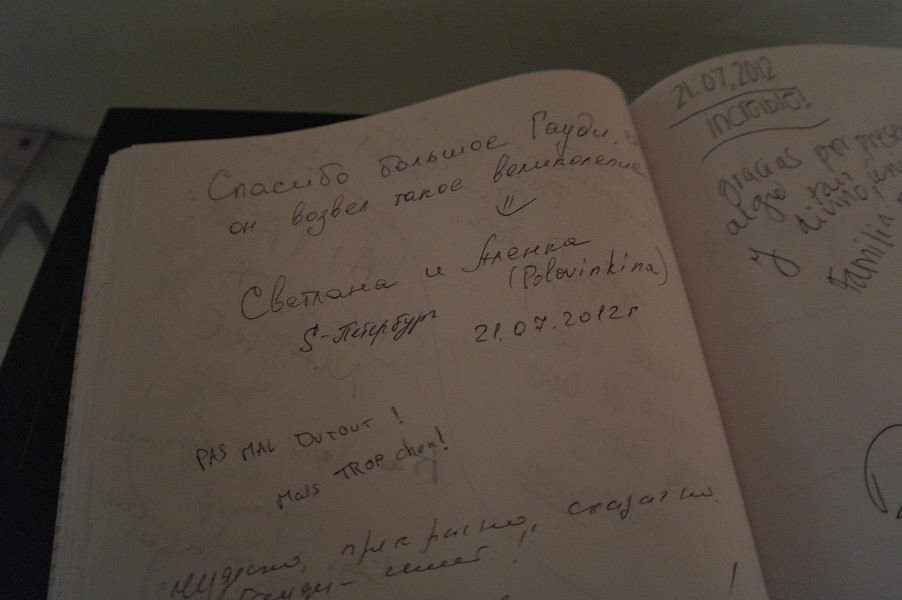 Спасибо большое Гауди,
он возвел такое великолепие
Светлана и Аленка
(Polovinkina)
S-Петербург 21.07.2012г
PAS MAL DUTOUT !
MAIS TROP cher!
чудесно, прекрасно, сказочно.
Гауди -
!
21.07,2012
INCREIBLE!
gracias por
algo tan
y divino,
Familia